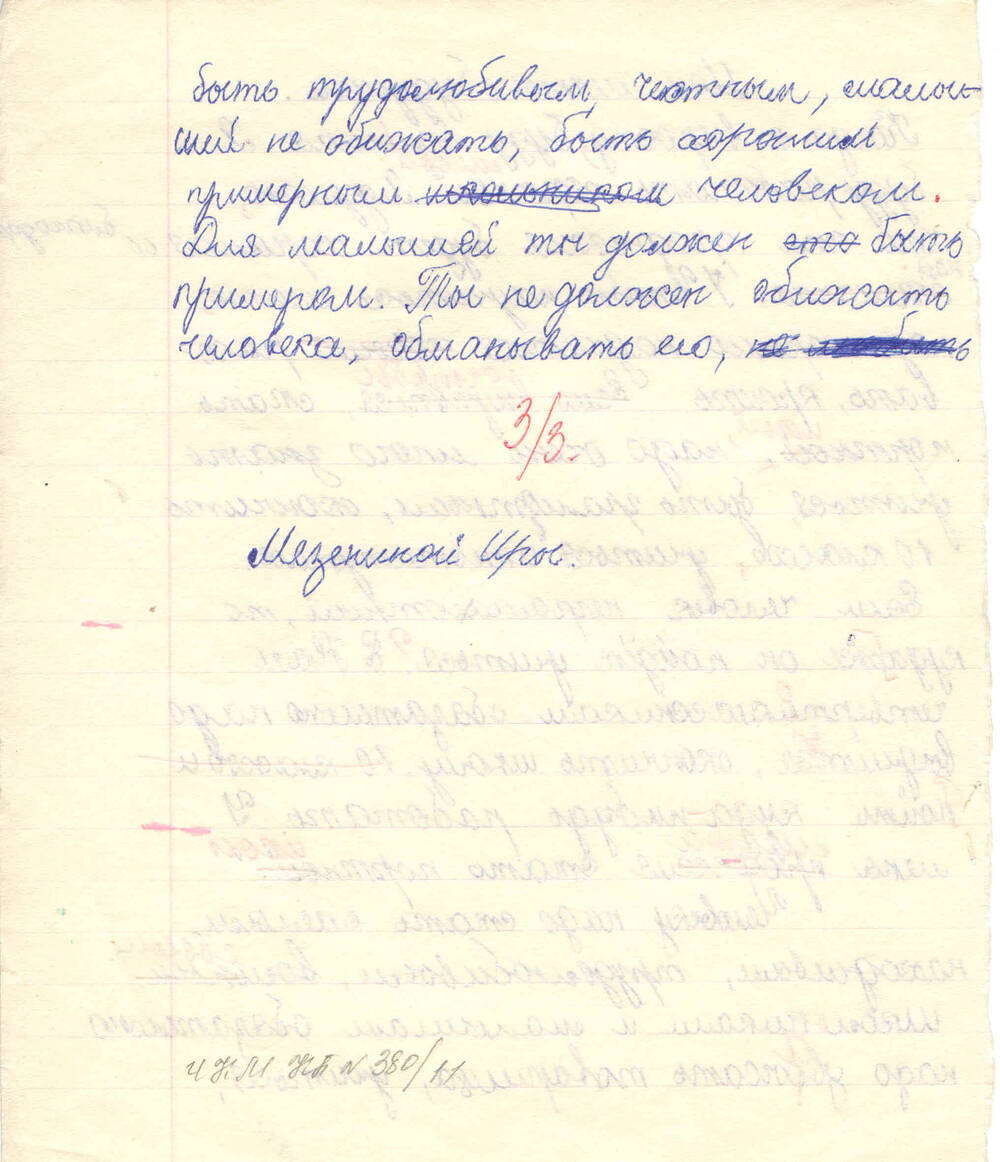 быть трудолюбивым, честным, малы-
шей не обижать, быть хорошим
примерным школьником человеком.
Для малышей ты должен быть
примером. Ты не должен обижать
человека, обманывать его, не
3/3-
Мезениной Иры.
ЧКМ КП N 380/11